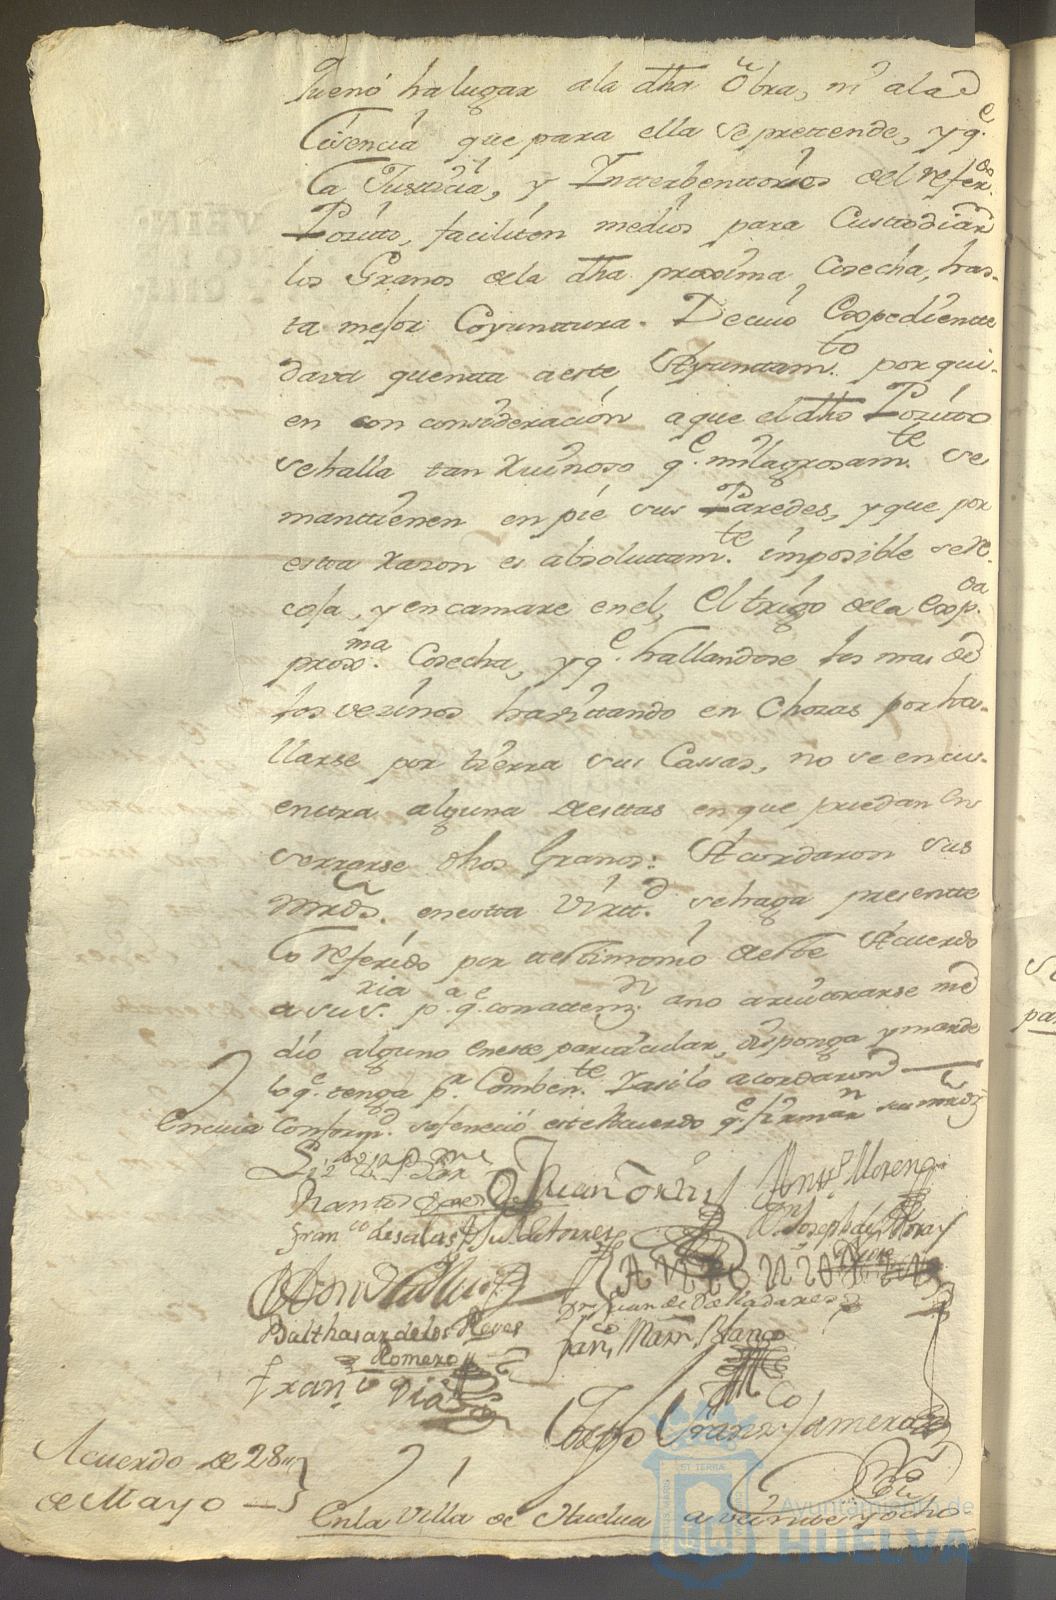 que no ha lugar a la dha Obra, ni a la
Lisencia que para ella se prettende, y q.e
la Justicia, y Intterbenttores del refer.do
Pozitto, faciliten medios para Custodiar
los Granos de la dha proxima Cosecha, has-
ta mejor Coyunttura. De cuio Expedientte
dava quentta a este Ayunttam.to por qui-
en con consideracion a que el dho Pozitto
se halla tan Ruinoso q.e milagrosam.te se
manttienen en pie sus Paredes, y que por
estta Razon es absoluttam.te imposible se re-
coja, y encamare en el, el trigo de la Exp.da
prox.ma Cosecha, y q.e hallandose los mas de
los vezinos havittando en Chozas por ha-
llarse por tierra sus Cassas, no se encu-
entra alguna de esttas en que puedan en
serrarse dhos Granos: Acordaron sus
Mrds. en estta virtt.d se haga presentte
lo referido por testimonio deste Acuerdo
a su S.ria p.a q.e con atten.n a no
medio alguno en este particular, disponga y mande
lo q.e tenga p.r Comben.te Y asi lo acordaron
En cuia Conform.d se fenecio este Acuerdo q.e firman sus mrds
Juan
Ant.o Moreno
Fran.co de salas
de torres
D.n Joseph de
Balthasar de los Reyes
Romero
D.n Juan de Valladares
Fran.co Marn. Blanco
Fran.co Diaz
Diego Franz.co
Acuerdo de 28
de Mayo
En la Villa de Huelva a veintte y ocho
Ayuntamiento de
HUELVA